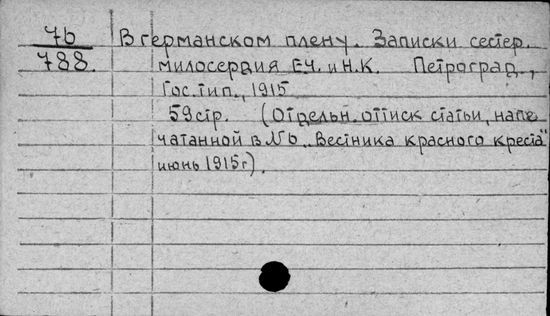 76 В германском плену. Записки сестер.
788. милосердия Е.Ч. и Н.К. Петроград.,
Гос. тип., 1915
59 стр. (Отдельн. оттиск статьи, напе
чатанной в № 6 „Вестника красного креста"
июнь 1915 г).